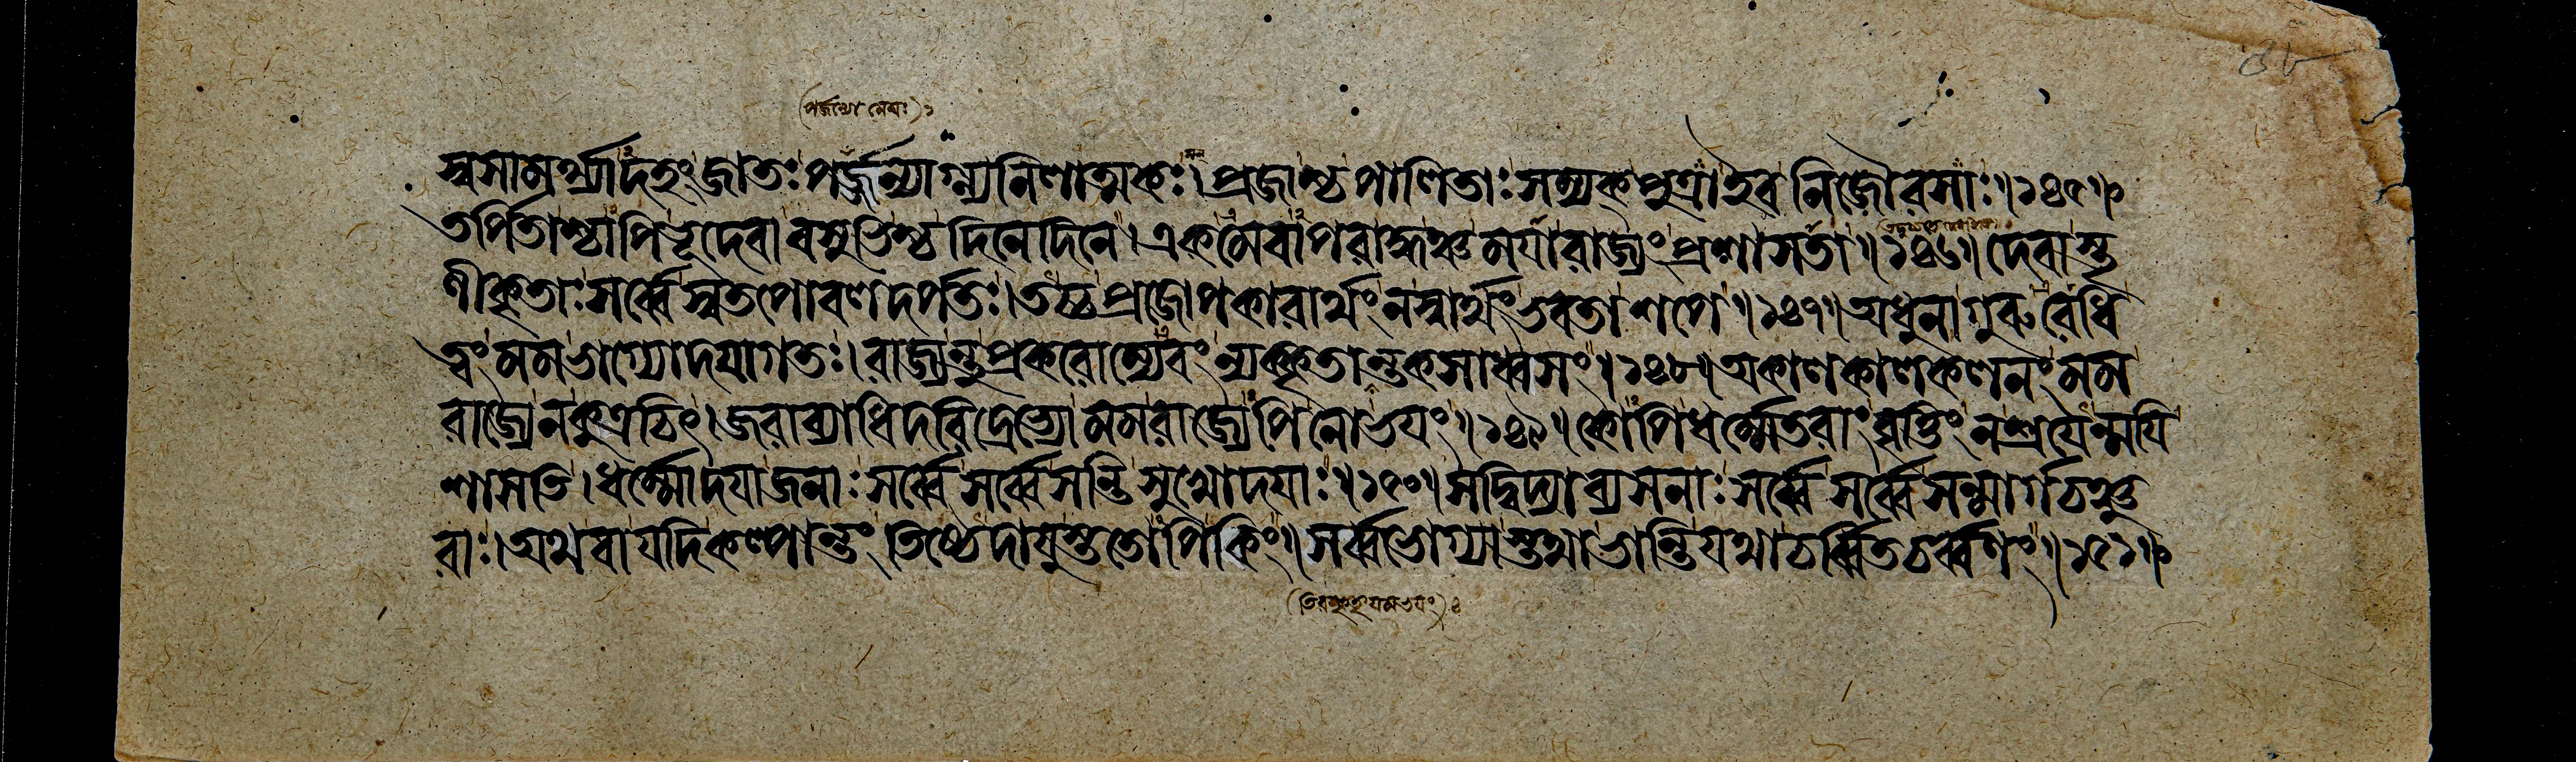 (পর্জন্যো মেঘঃ)১
স্বসামর্থ্যাদহং জাতঃ পর্জ্জন্যাগ্ন্যনিলাত্মকঃ। প্রজাশ্চ পালিতাঃ সম্যক্ পুত্রা ইব নিজৌরসাঃ॥১৪৫॥
তর্পিতাশ্চাপি ভূদেবা বসুভিশ্চ দিনেদিনে। একমেবাপরাদ্ধঞ্চ ময়া রাজ্যং প্রশাসতা॥১৪৬॥ দেবাস্তৃ
ণীকৃতাঃ সর্ব্বে স্বতপোবলদর্পতঃ। তচ্চ প্রজোপকারার্থং ন স্বার্থং ভবতা শপে॥১৪৭॥ অধুনা গুরুরেধি
ত্বং মম ভাগ্যোদয়াগতঃ। রাজ্যন্তু প্রকরোম্যেবং ন্যক্কৃতান্তকসাধ্বসং॥১৪৮॥ অকালকালকলনং মম
রাজ্যে ন কুত্রচিৎ। জরাব্যাধিদরিদ্রেভ্যো মম রাজ্যেপি নো ভয়ং॥১৪৯॥ কোপি ধর্ম্মেতরাং বৃত্তিং ন শ্রয়েন্ময়ি
শাসতি। ধর্ম্মোদয়া জনাঃ সর্ব্বে সর্ব্বে সন্তি সুখোদয়াঃ॥১৫০॥ সদ্বিদ্যাব্যসনাঃ সর্ব্বে সর্ব্বে সন্মার্গচঞ্চু
রাঃ। অথবা যদি কল্পান্তং তিষ্ঠেদায়ুস্ততোপি কিং॥ সর্ব্বভোগ্যাস্তথা ভান্তি যথা চর্ব্বিতচর্ব্বণং॥১৫১॥
(তিরস্কৃতযমভয়ং)৪